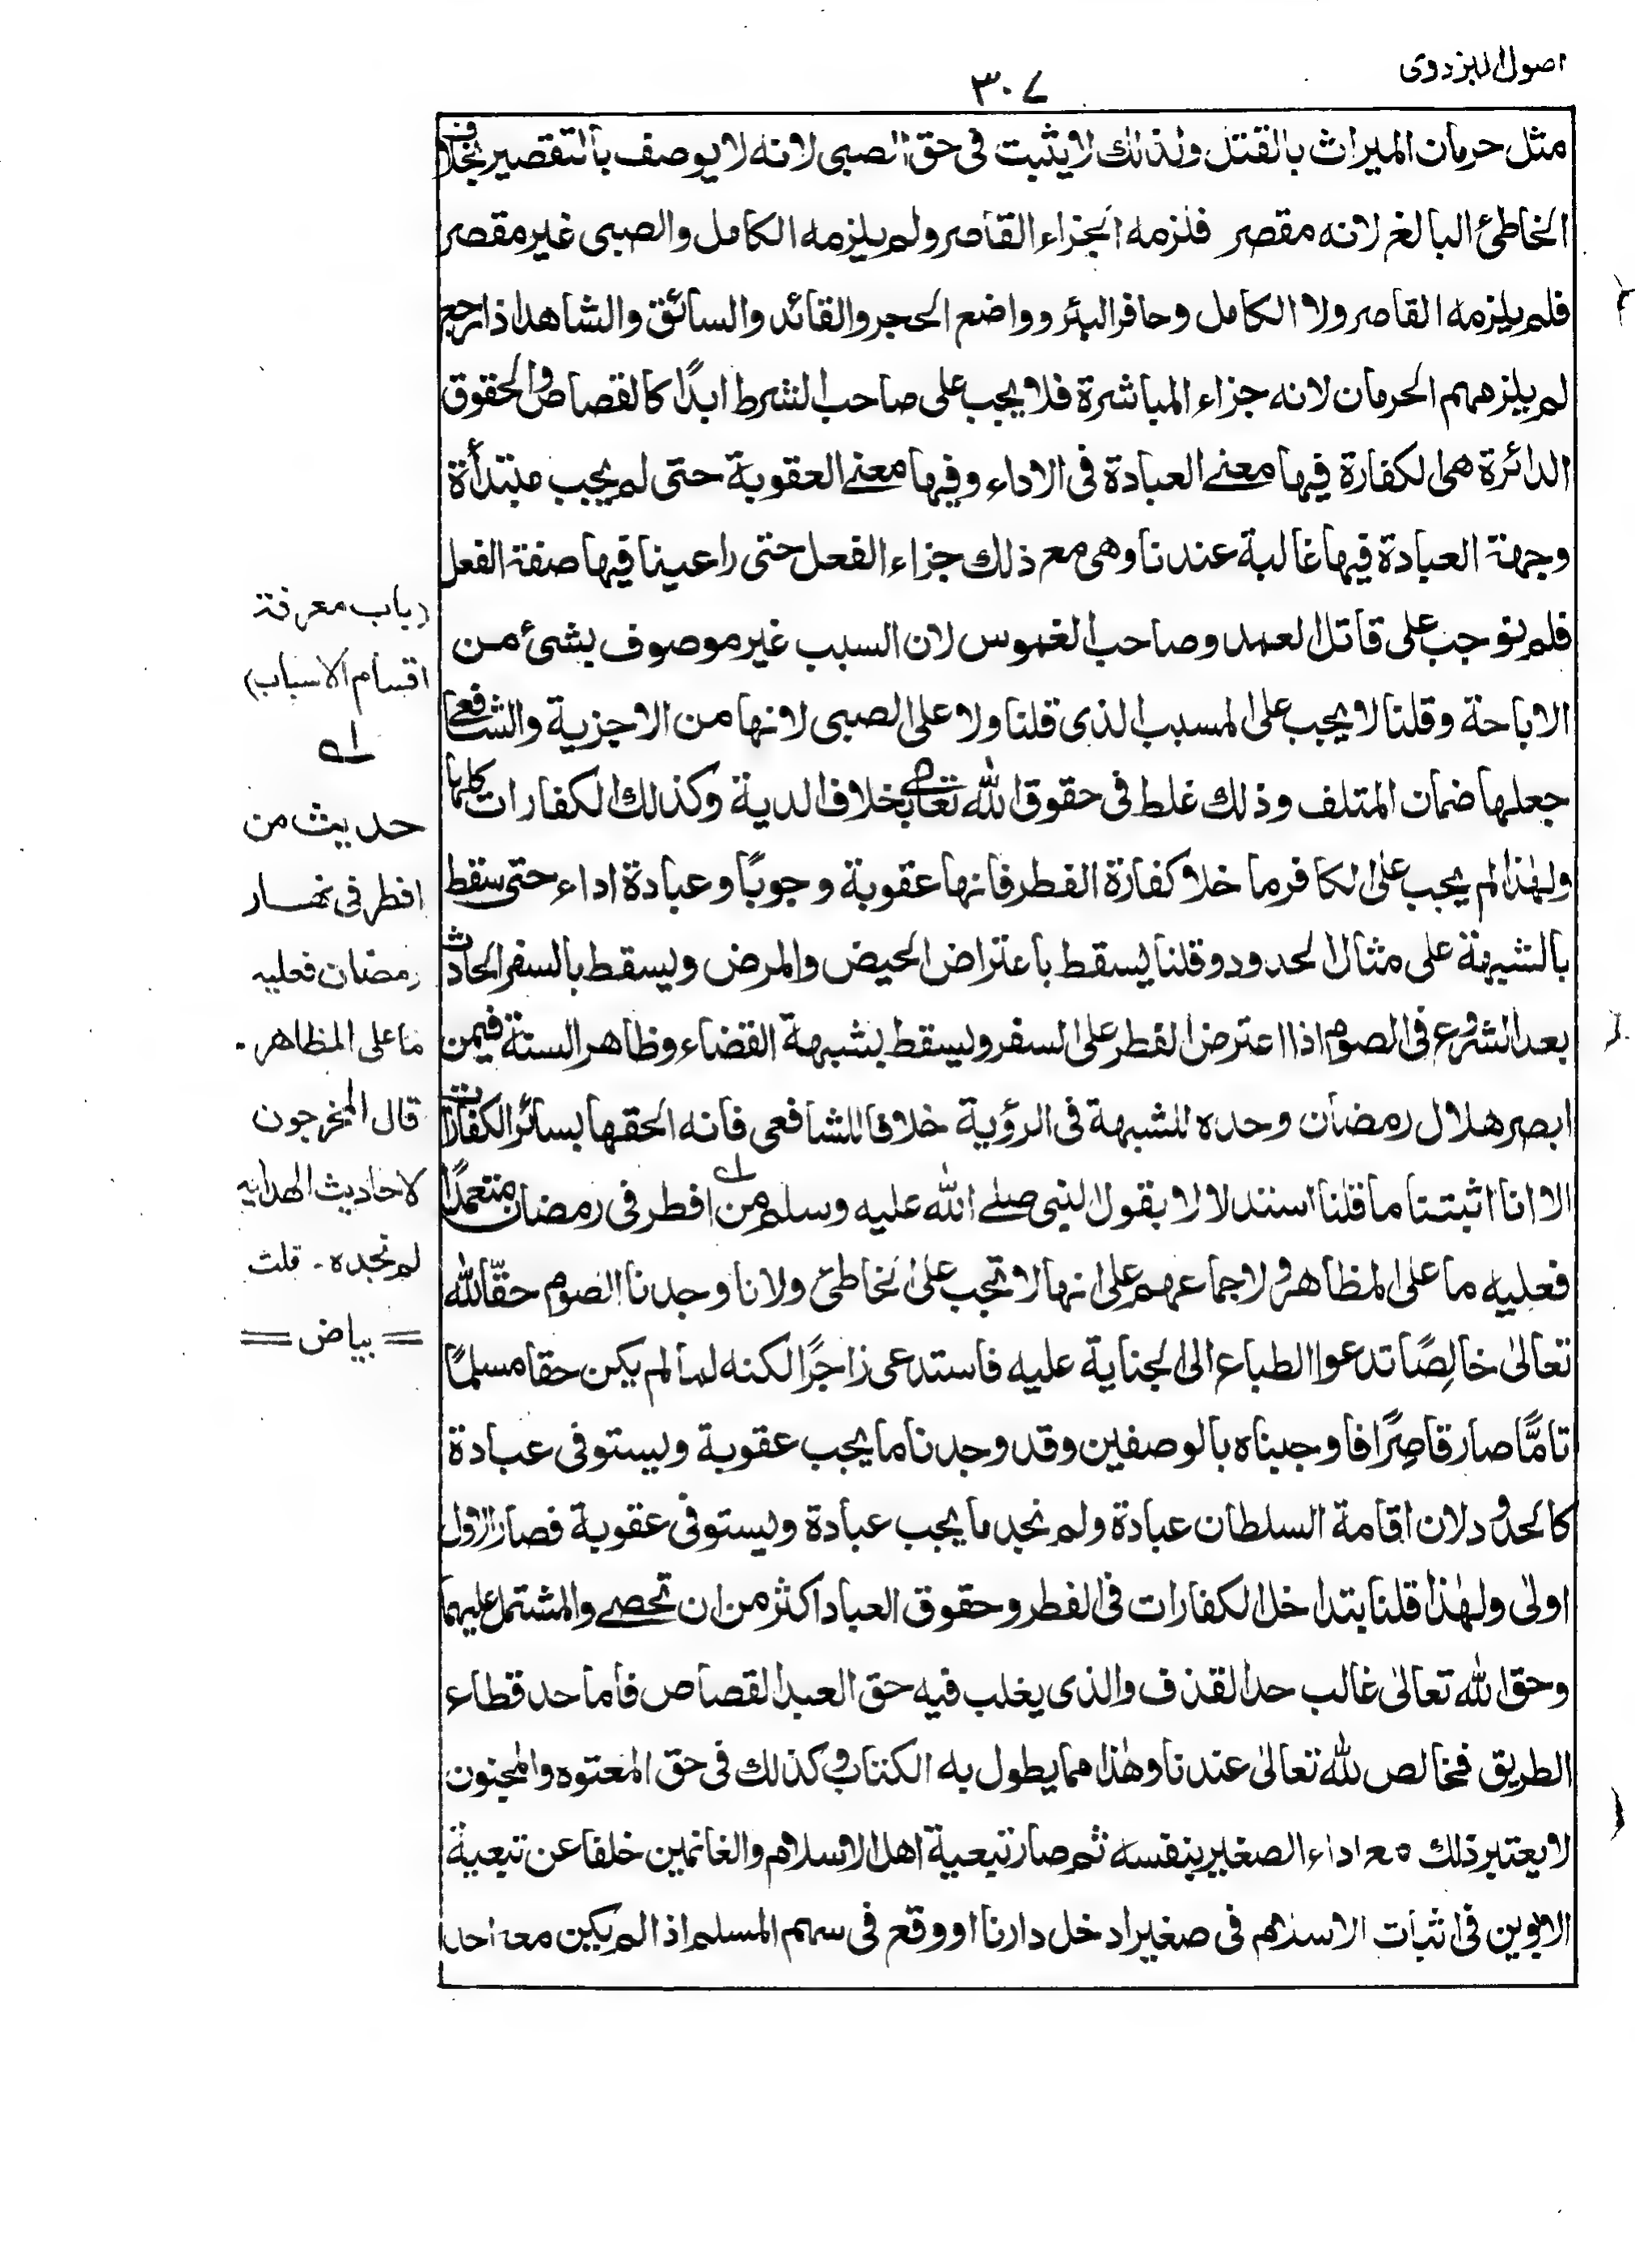 اصول البزدوى
٣٠٧
مثل حرمان الميراث بالقتل ولذلك لا يثبت فى حق الصبى لانه لا يوصف بالتقصير بخلاف
الخاطئ البالغ لانه مقصر فلزمه الجزاء القاصر ولم يلزمه الكامل والصبى غير مقصر
فلم يلزمه القاصر ولا الكامل وحافر البئر وواضع الحجر والقائد والسائق والشاهد اذا رجع
لم يلزمهم الحرمان لانه جزاء المباشرة فلا يجب على صاحب الشرط ابدًا كالقصاص والحقوق
الدائرة هى الكفارة فيها معنے العبادة فى الاداء وفيها معنے العقوبة حتى لم يجب مبتدأة
وجهة العبادة فيها غالبة عندنا وهى مع ذلك جزاء الفعل حتى راعينا فيها صفة الفعل
فلم نوجب على قاتل العمد وصاحب الغموس لان السبب غير موصوف بشئ من
الاباحة وقلنا لا يجب على المسبب الذى قلنا ولا على الصبى لانها من الاجزية والشافعے
جعلها ضمان المتلف وذلك غلط فى حقوق الله تعالى بخلاف الدية وكذلك الكفارات كلها
ولهٰذا لم يجب على الكافر ما خلا كفارة الفطر فانها عقوبة وجوبًا وعبادة اداء حتى سقط
بالشبهة على مثال الحدود وقلنا يسقط باعتراض الحيض والمرض ويسقط بالسفر الحادث
بعد الشروع فى الصوم اذا اعترض الفطر على السفر ويسقط بشبهة القضاء وظاهر السنة فيمن
ابصر هلال رمضان وحده للشبهة فى الرؤية خلافا للشافعى فانه الحقها بسائر الكفارات
الا انا اثبتنا ما قلنا استدلالا بقول النبى صلے الله عليه وسلم من افطر فى رمضان متعمدًا
فعليه ما على المظاهر ولاجماعهم على انها لا تجب على الخاطئ ولانا وجدنا الصوم حقًّا لله
تعالىٰ خالِصًا تدعوا الطباع الى الجناية عليه فاستدعى زاجرًا لكنه لما لم يكن حقا مسلمًا
تامًّا صار قاصِرًا فاوجبناه بالوصفين وقد وجدنا ما يجب عقوبة ويستوفى عبادة
كالحدود لان اقامة السلطان عبادة ولم نجد ما يجب عبادة ويستوفى عقوبة فصار الاول
اولىٰ ولهٰذا قلنا بتداخل الكفارات فى الفطر وحقوق العباد اكثر من ان تحصے والمشتمل عليهما
وحق الله تعالىٰ غالب حد القذف والذى يغلب فيه حق العبد القصاص فاما حد قطاع
الطريق فخالص لله تعالىٰ عندنا وهٰذا مما يطول به الكتاب وكذلك فى حق المعتوه والمجنون
لا يعتبر ذلك مع اداء الصغير بنفسه ثم صار تبعية اهل الاسلام والغانمين خلفا عن تبعية
الابوين فى اثبات الاسلام فى صغير ادخل دارنا او وقع فى سهم المسلم اذا لم يكن معه احد
(باب معرفة
اقسام الاسباب)
لے
حديث من
افطر فى نهار
رمضان فعليه
ما على المظاهر.
قال المخرجون
لاحاديث الهدايه
لم نجده. قلت
= بياض =